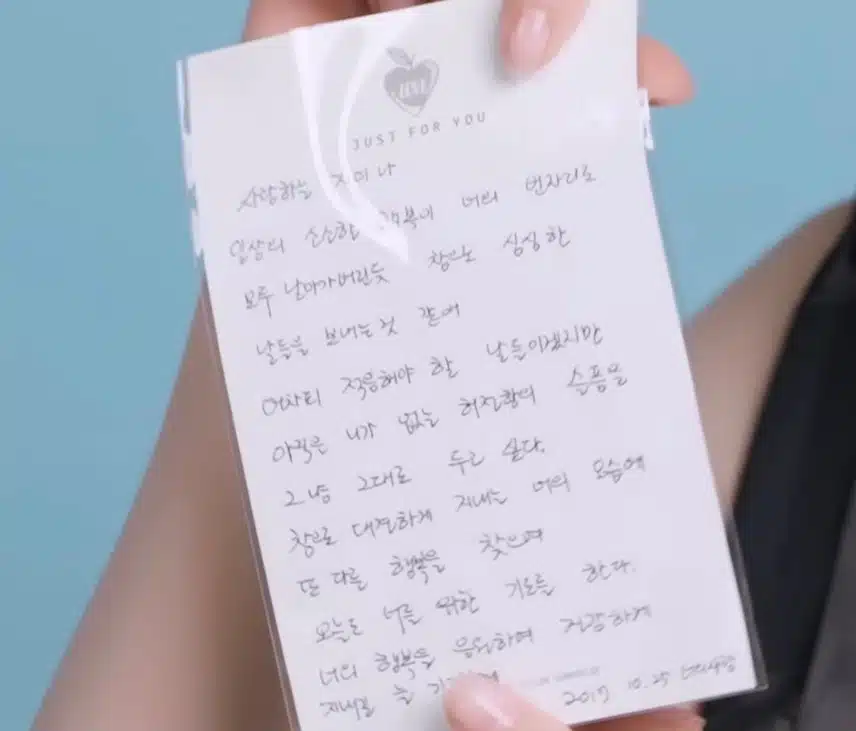 LOVE
JUST FOR YOU
사랑하는 지미나
일상의 소소한 행복이 너의 빈자리로
모두 날아가버린듯 참으로 심심한
날들을 보내는것 같애
어차피 적응해야 할 날들이겠지만
아직은 니가 없는 허전함의 슬픔을
그냥 그대로 두고 싶다.
참으로 대견하게 지내는 너의 모습에
또 다른 행복을 찾으며
오늘도 너를 위한 기도를 한다.
너의 행복을 응원하며 건강하게
지내길 늘
2017 10.25